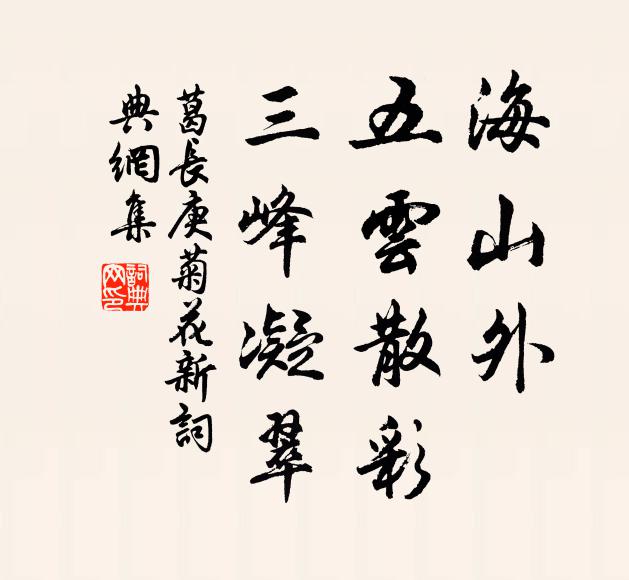 海山外
五雲散彩
三峰凝翠
葛長庚菊花新詞
典網集
詞典網印